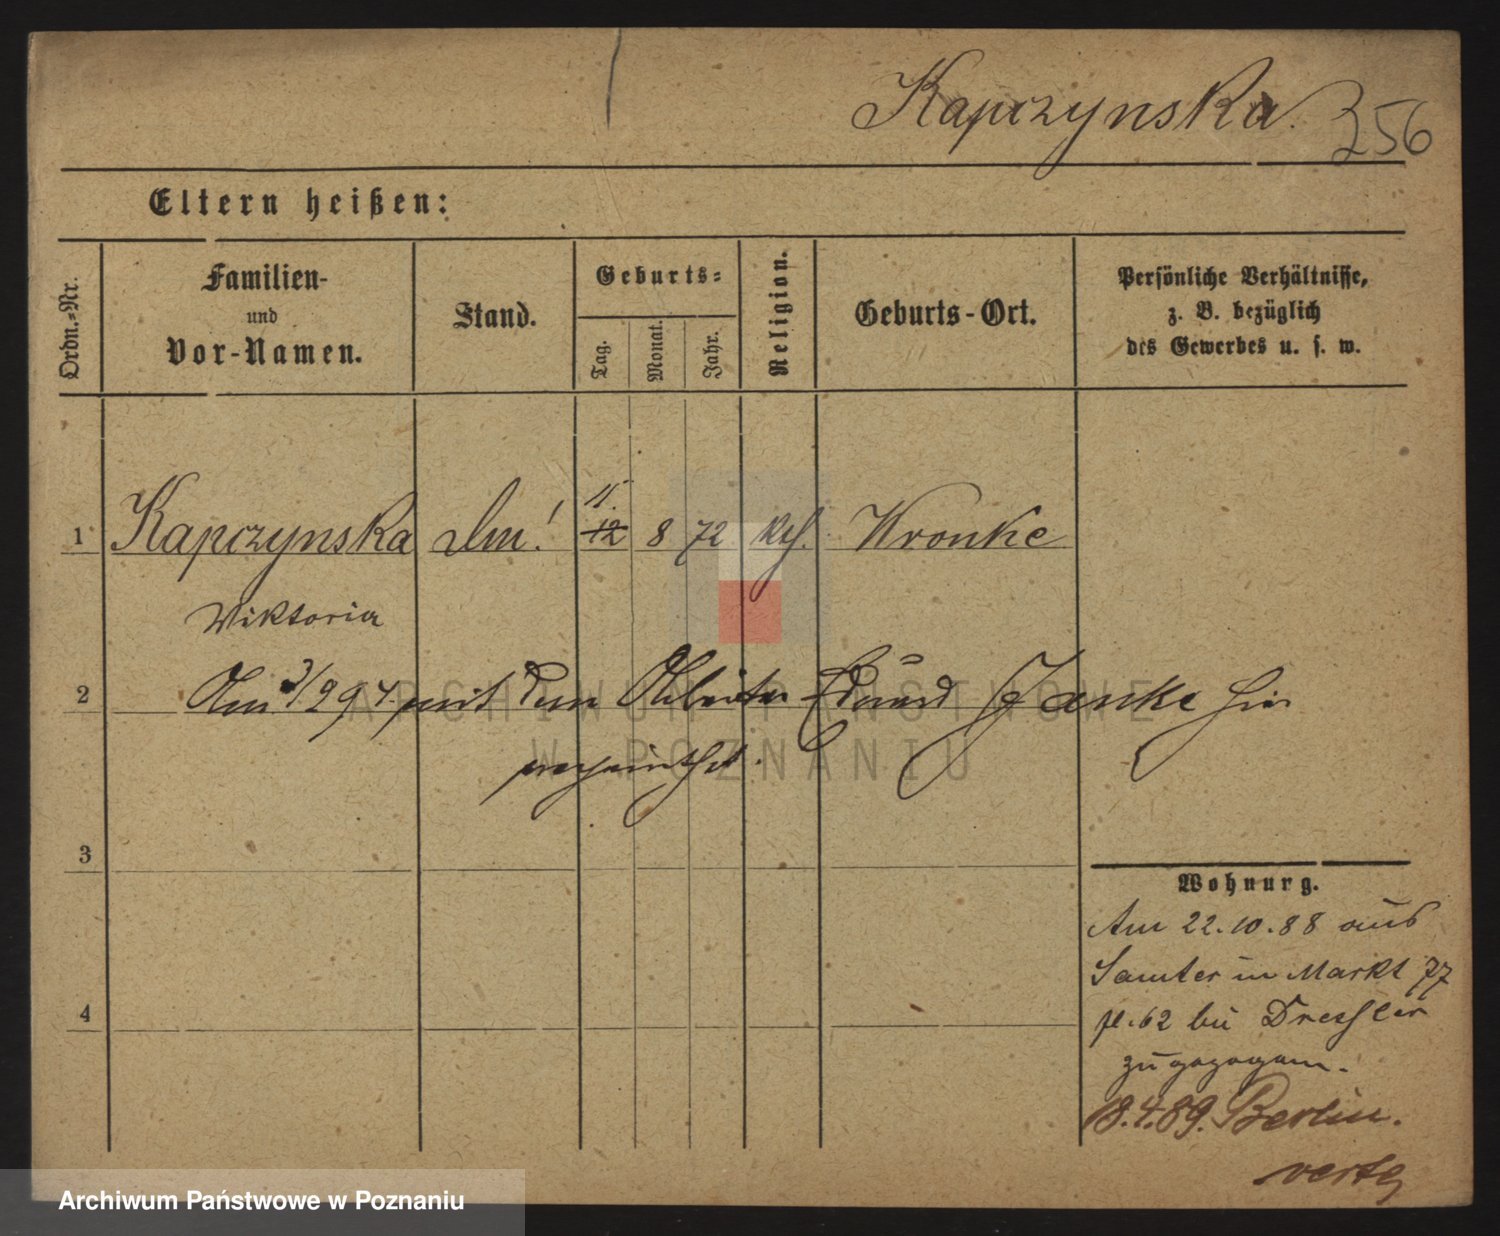 Kapczynska. 256
Eltern heißen:
Ordn.-Nr.
Familien-
und
Vor-Namen.
Stand.
Geburts-
Tag.
Monat.
Jahr.
Religion.
Geburts-Ort.
Persönliche Verhältnisse,
z. B. bezüglich
des Gewerbes u. s. w.
11.
1 Kapczynska 12 8 72 kth. Wronke
Viktoria
2 Am 3/2 97. mit dem Arbeiter Eduard Janke hier
verheirathet.
3
Wohnung.
Am 22.10.88 aus
Samter in Markt 77
4
pl. 62 bei Dressler
zugezogen.
18.4.89. Berlin.
verte
ARCHIWUM PAŃSTWOWE
W POZNANIU
Archiwum Państwowe w Poznaniu